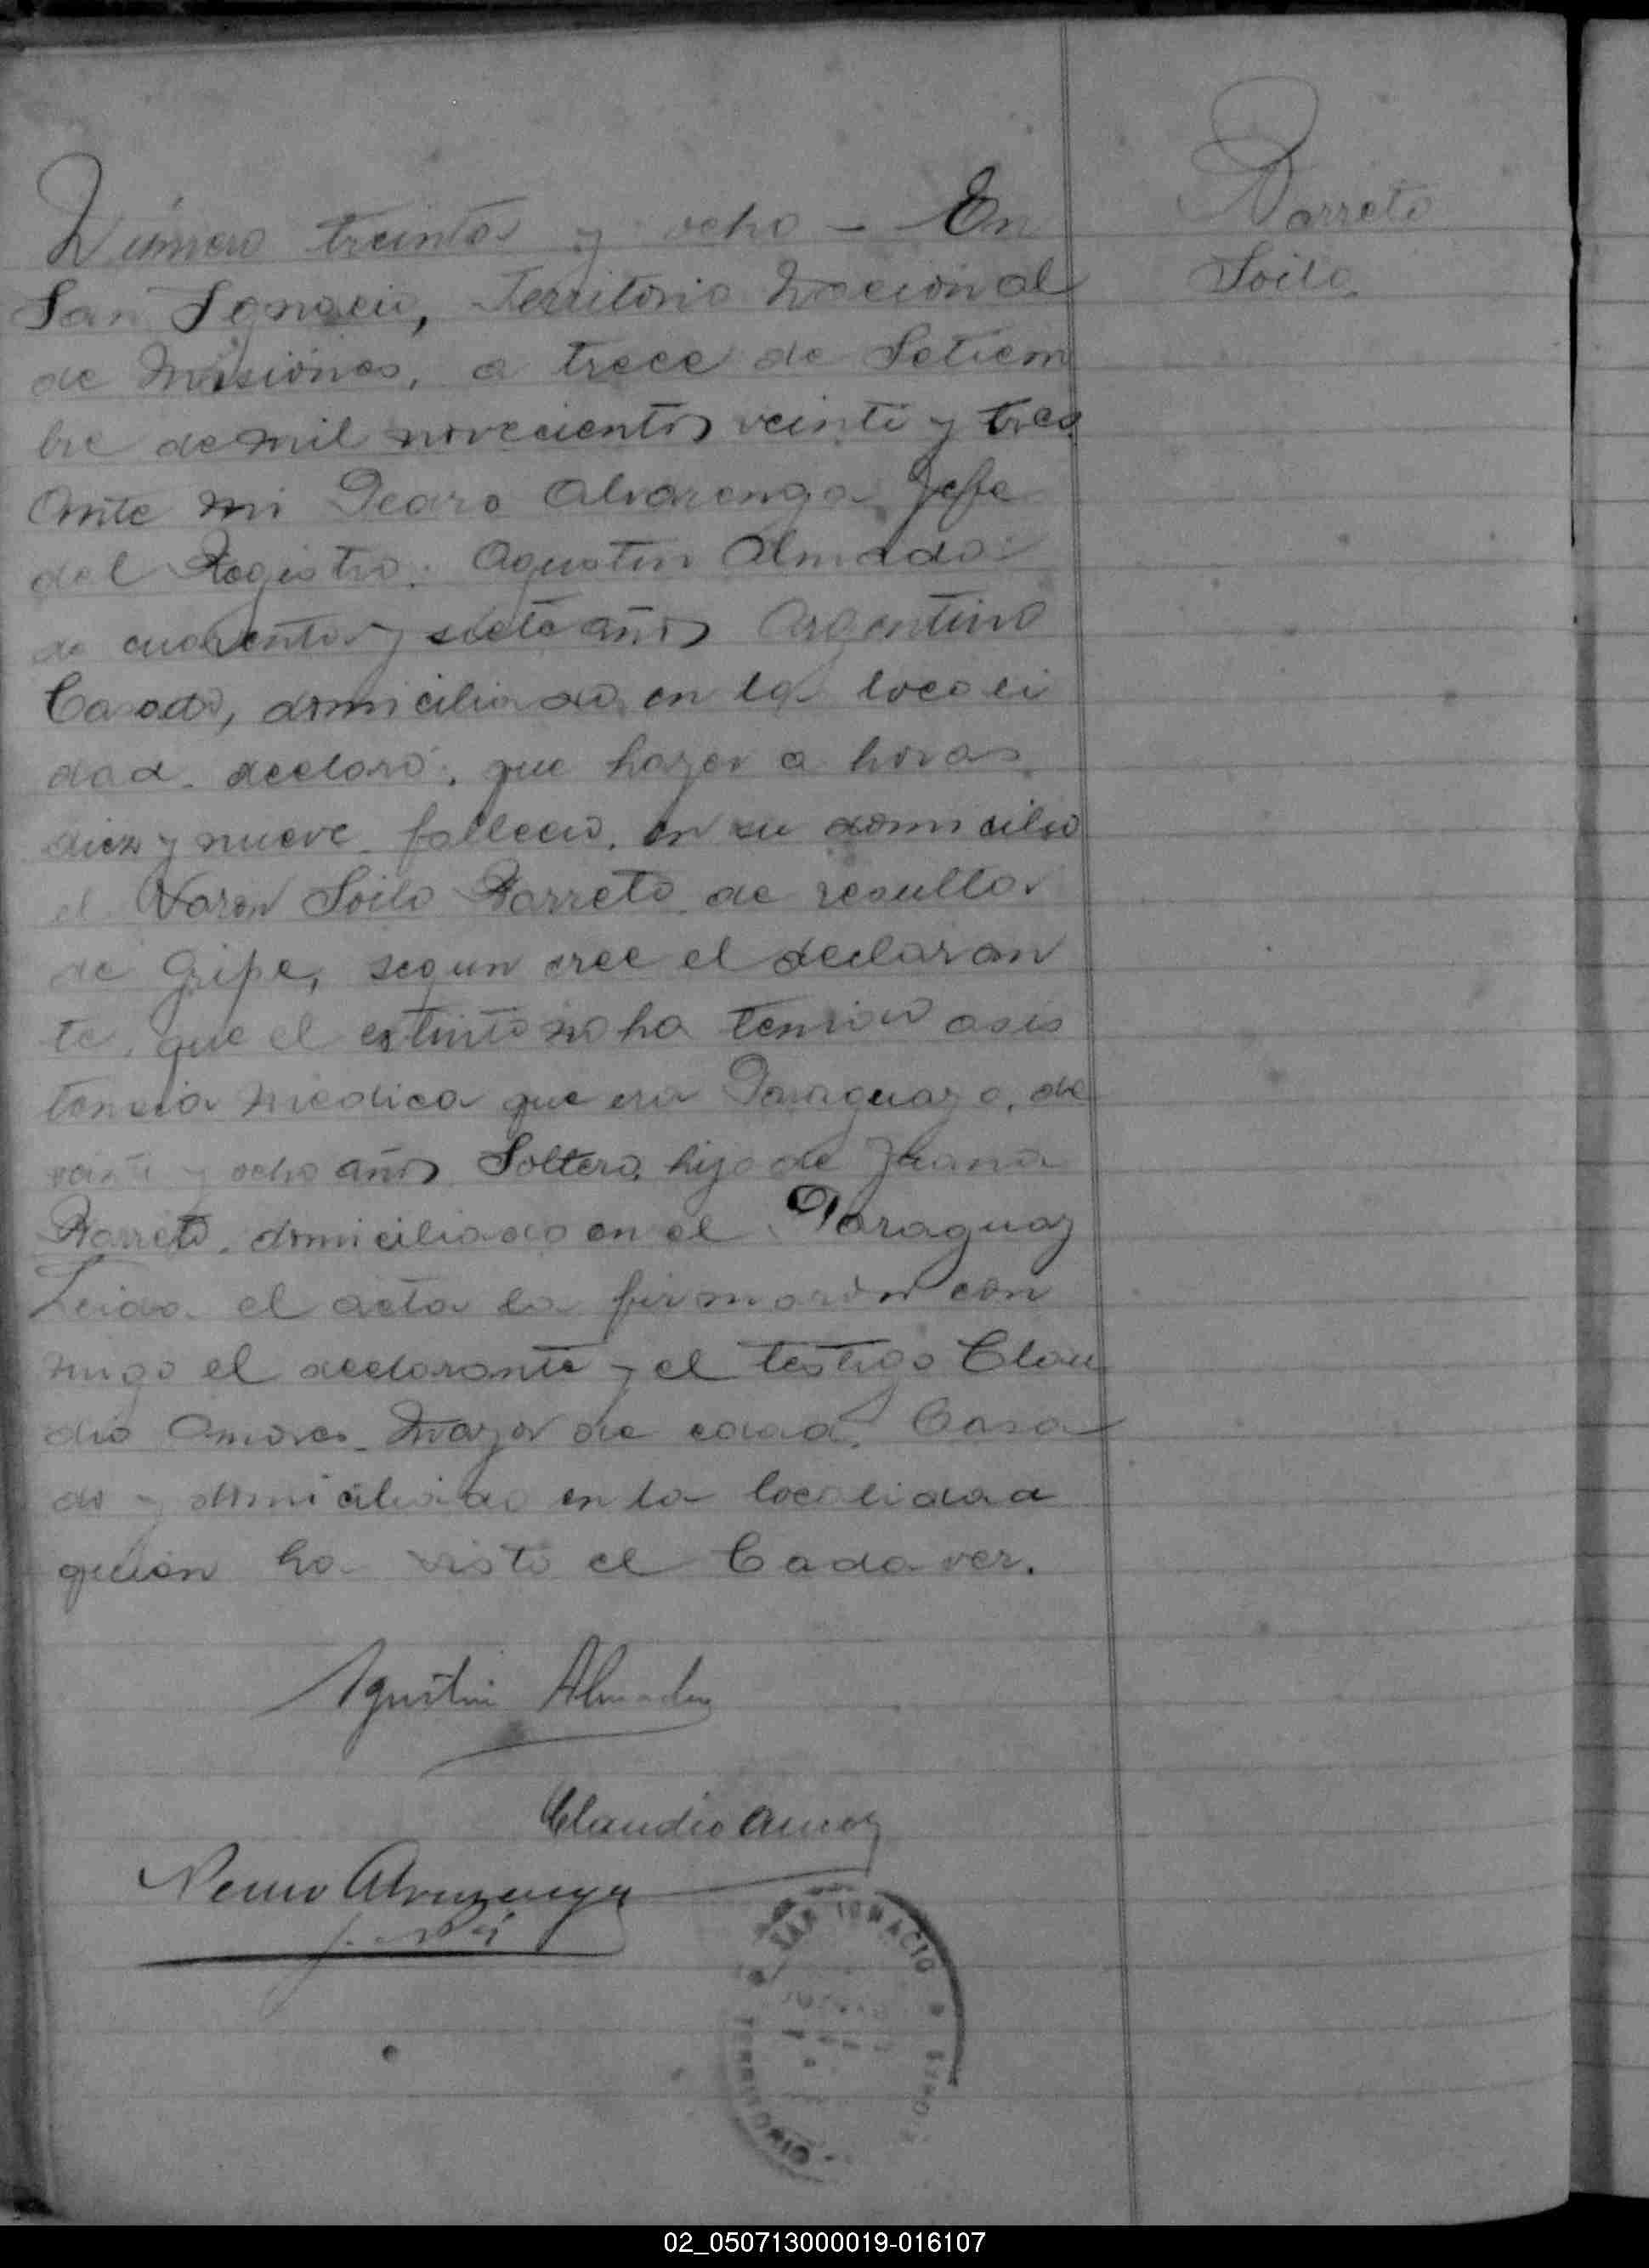 Número treinta y ocho - En
San Ignacio, Territorio Nacional
de Misiones, a trece de Setiem
bre de mil novecientos veinte y tres
Ante mi Pedro Alvarenga Jefe
del Registro: Agustin Almada
de cuarenta y siete años Argentino
Casado, domiciliado en la locali
dad. declaró: que hayer a horas
diez y nueve falleció, en su domicilio
el Varon Soilo Barreto de resulta
de Gripe, segun cree el declaran
te, que el estinto no ha tenido asis
tencia medica que era Paraguayo, de
veinte y ocho años Soltero, hijo de Juana
Barreto, domiciliado en el Paraguay
Leida el acta la firmaron con
migo el declarante y el testigo Clau
dio Amores Mayor de edad, Casa
do y domiciliado en la localidad
quien ha visto el Cadaver.
Barreto
Soilo
Agustin Almada
Claudio
Pedro Alvarenga
SAN IGNACIO
TERRITORIO
02_050713000019-016107